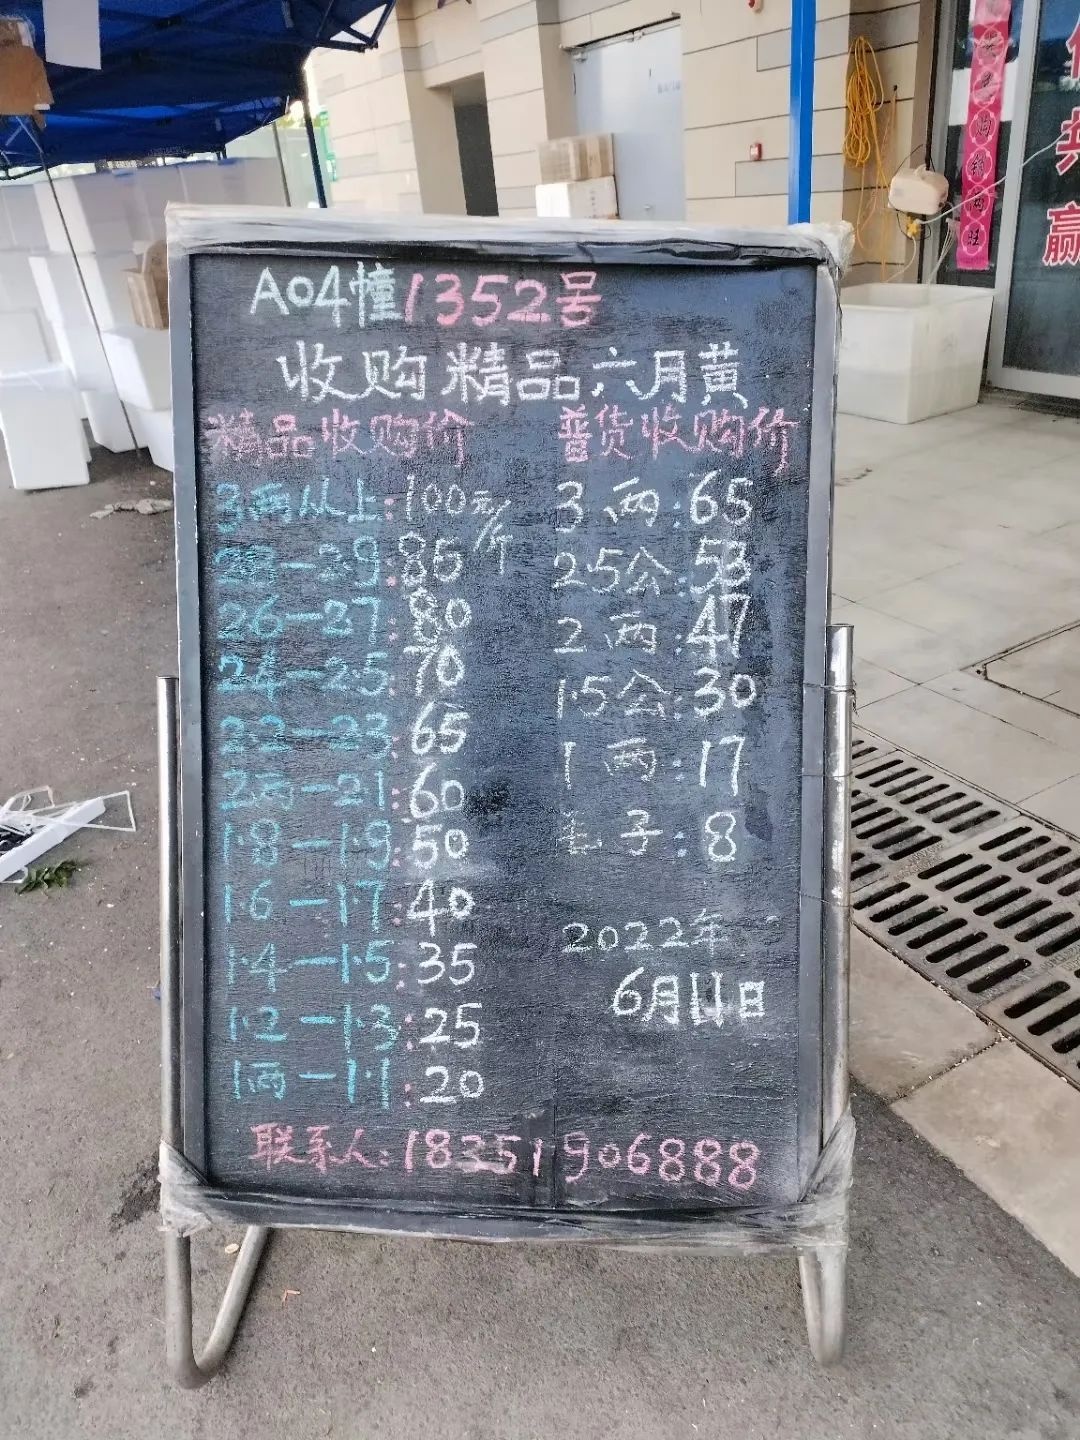 A04幢1352号
收购精品六月黄
精品收购价
3两从上:100元/斤
28-29:85
26-27:80
24-25:70
22-23:65
2两-21:60
1.8-1.9:50
16-1.7:40
1.4-1.5:35
1.2-1.3:25
1两-1.1:20
普货收购价
3两:65
2.5公:53
2两:47
1.5公:30
1两:17
毛子:8
2022年
6月11日
联系人:18351906888
购销两旺
共
赢